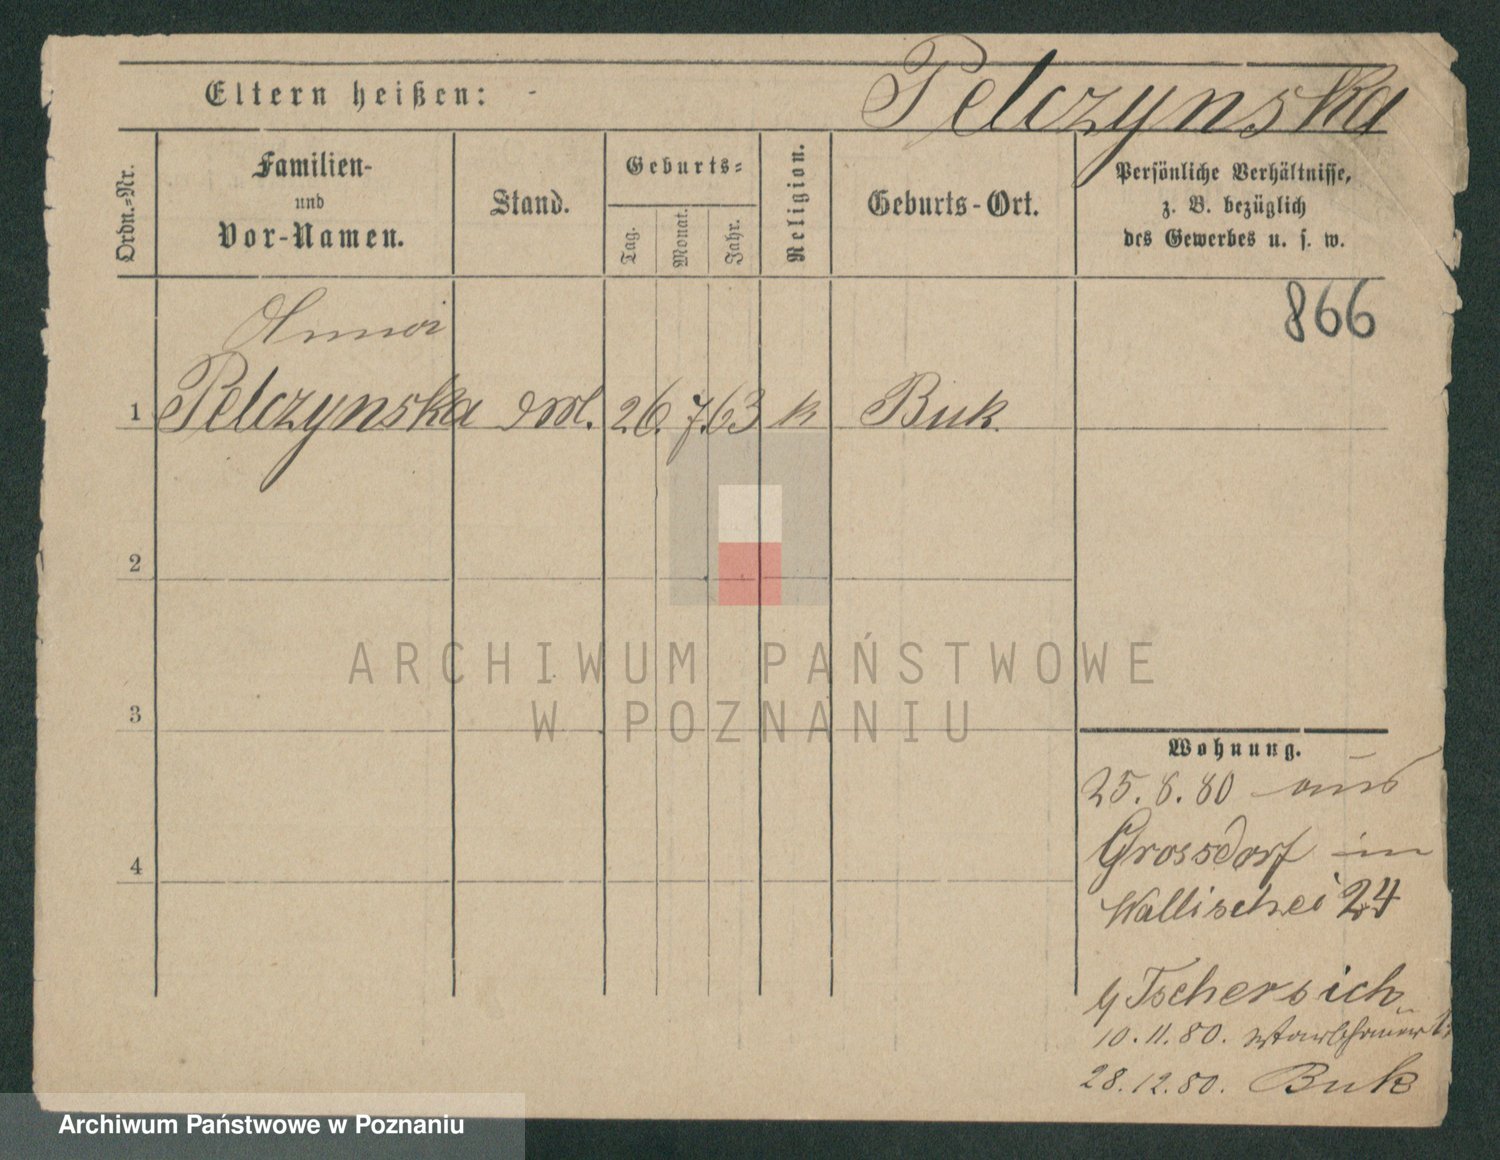 Pelczynska
Eltern heißen: -
Ordn.=Nr.
Familien-
und
Vor-Namen.
Stand.
Geburts=
Tag.
Monat.
Jahr.
Religion.
Geburts-Ort.
Persönliche Verhältnisse,
z. B. bezüglich
des Gewerbes u. s. w.
866
Anna
1 Pelczynska 26. 7. 63 k Buk.
2
3
4
ARCHIWUM PAŃSTWOWE
W POZNANIU
Wohnung.
25. 8. 80 aus
Grossdorf in
Wallischei 24
Tschersich
10. 11. 80.
28. 12. 80. Buk
Archiwum Państwowe w Poznaniu